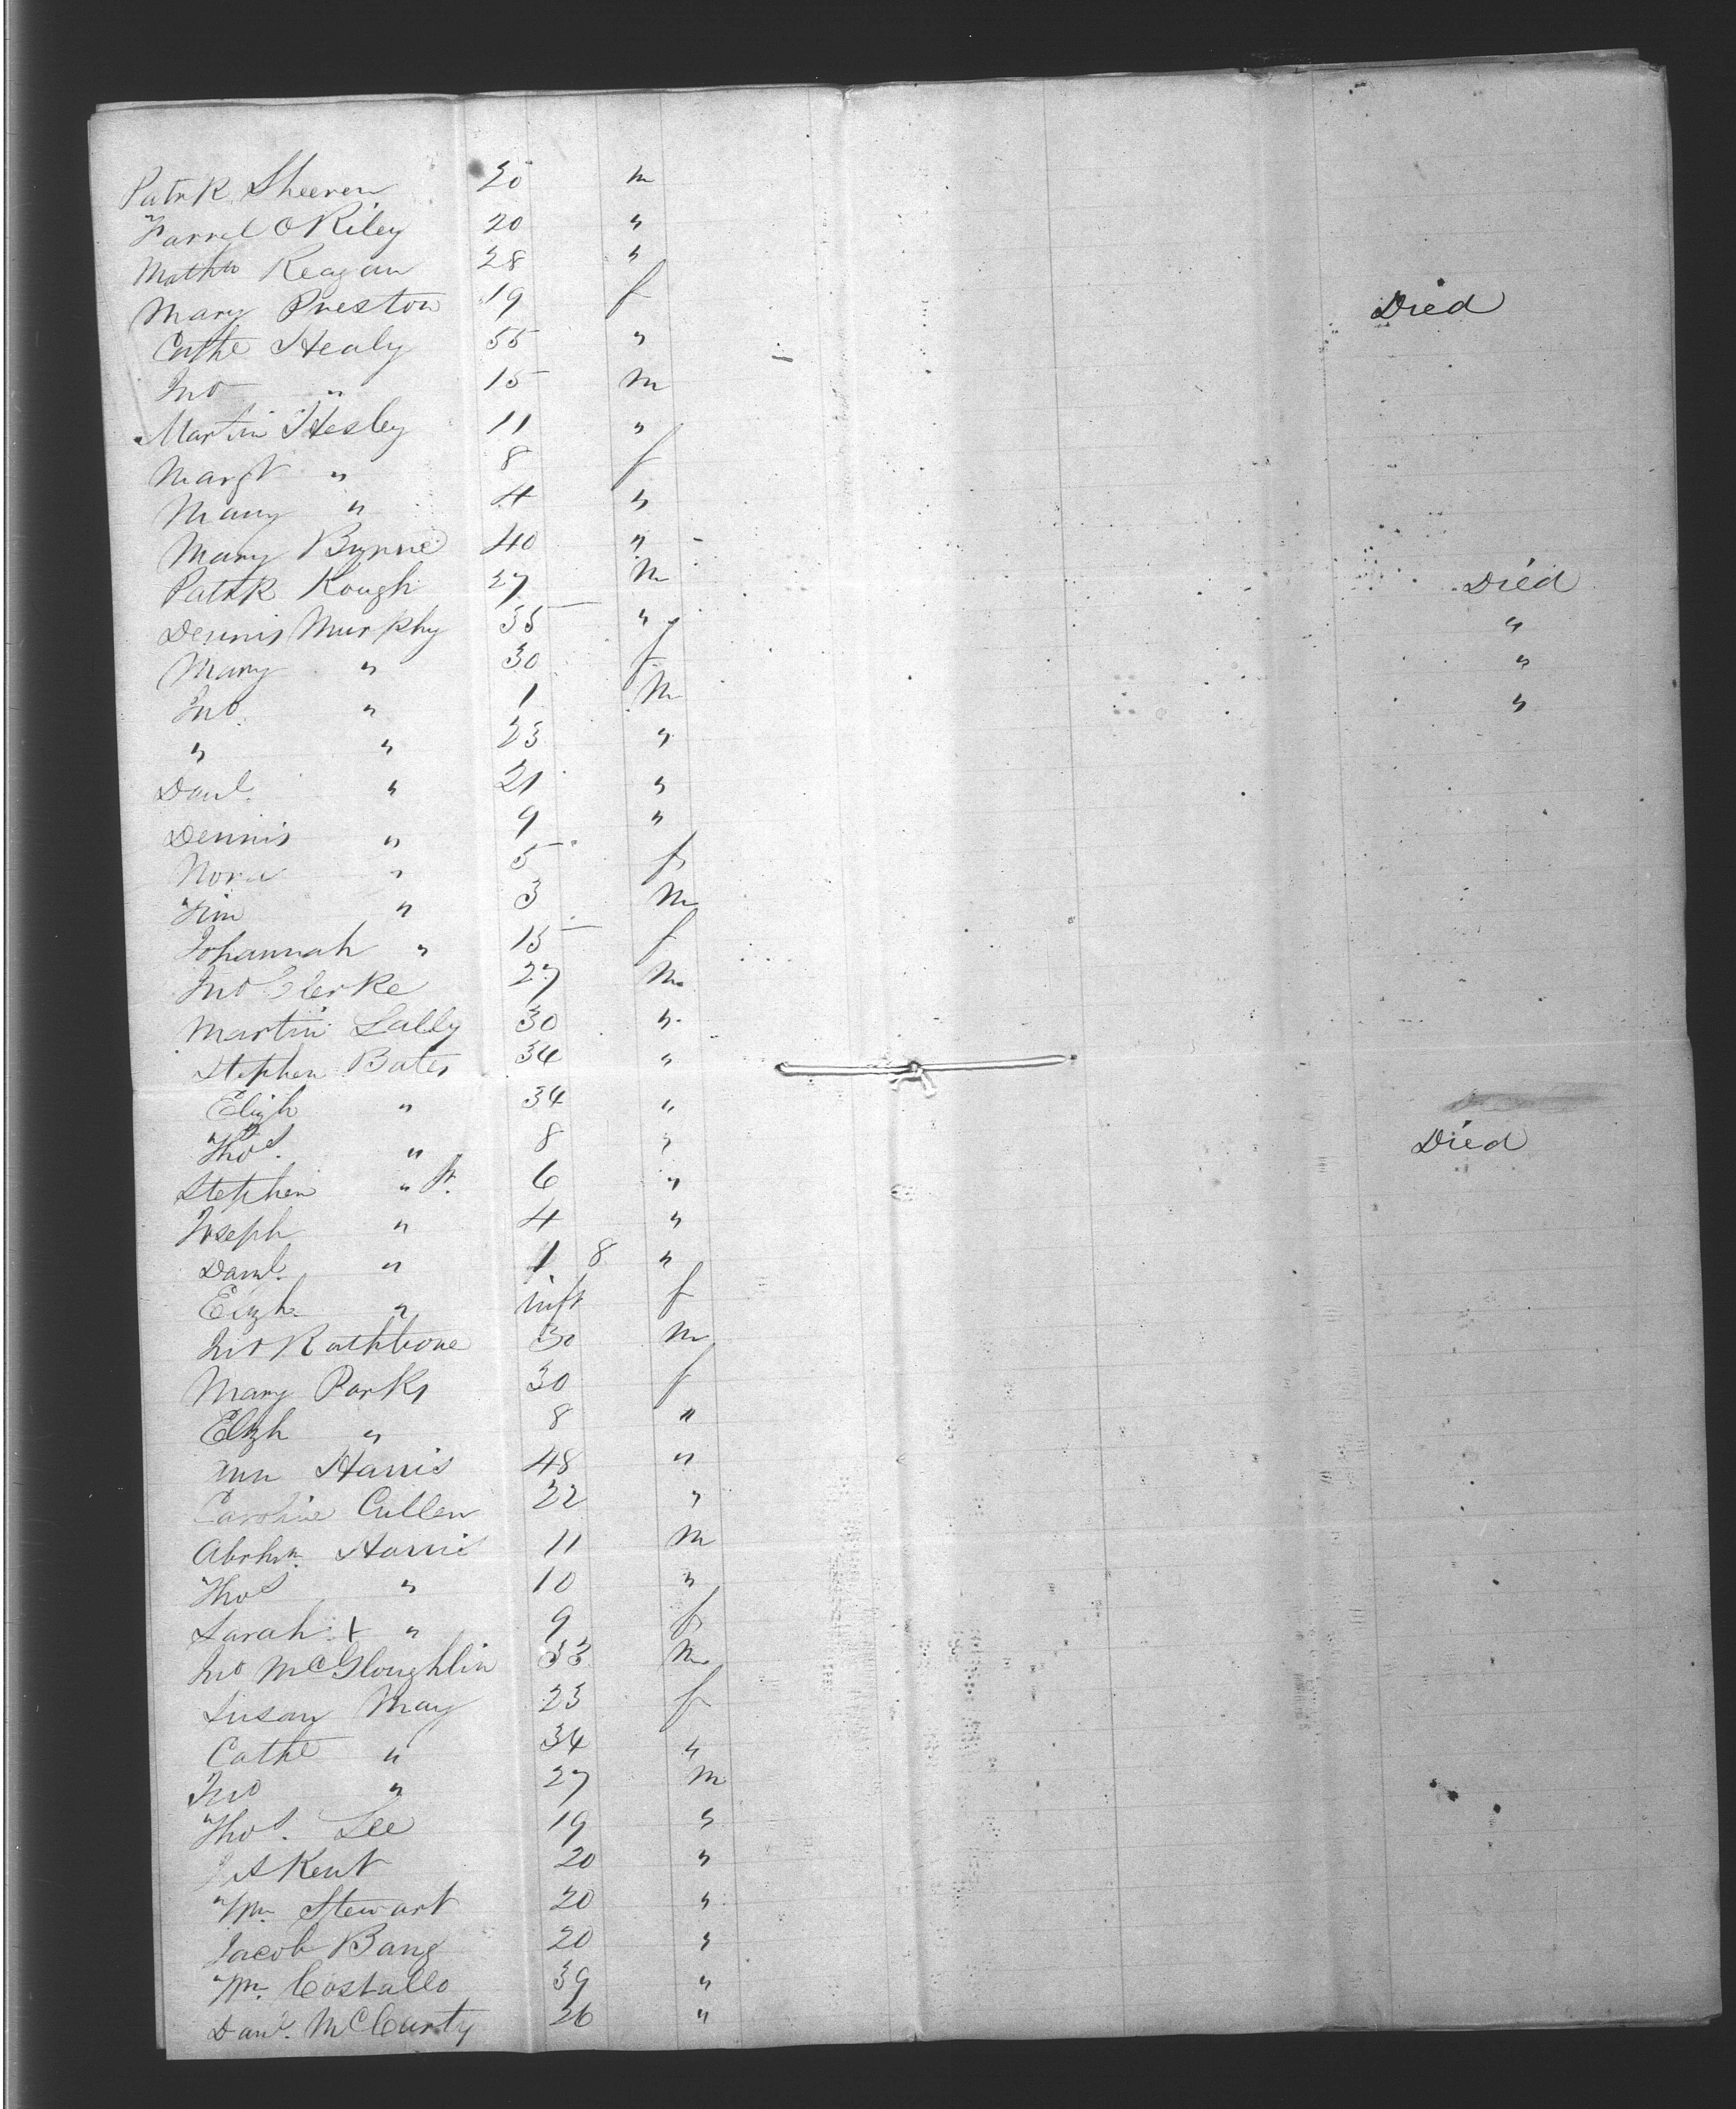 Patrk Sheeren 20 m
Farrel O Riley 20 "
Mathw Reagan 28 "
Mary Preston 19 f Died
Cathe Healy 55 "
Jno " 15 m
Martin Hesley 11 "
Margt " 8 f
Mary " 4 "
Mary Byrne 40 "
Patrk Kough 27 m Died
Dennis Murphy 35 " "
Mary " 30 f "
Jno " 1 m "
" " 23 "
Danl. " 21 "
Dennis " 9 "
Nora " 5 f
Tim " 3 m
Johannah " 15 f
Jno Clerke 27 m
Martin Lally 30 "
Stephen Bates 34 "
Elizh " 34 "
Thos. " 8 " Died
Stephen " Jr. 6 "
Joseph " 4 "
Danl. " 1 8 "
Elizh " inft f
Jno Rathbone 30 m
Mary Parks 30 f
Elizh " 8 "
Ann Harris 48 "
Caroline Cullen 22 "
Abrhm. Harris 11 m
Thos " 10 "
Sarah + " 9 f
Jno McGloughlin 33 m
Susan May 23 f
Cathe " 34 "
Jno " 27 m
Thos. Lee 19 "
J A Kent 20 "
Wm. Stewart 20 "
Jacob Bang 20 "
Wm. Costallo 39 "
Danl. McCurty 26 "